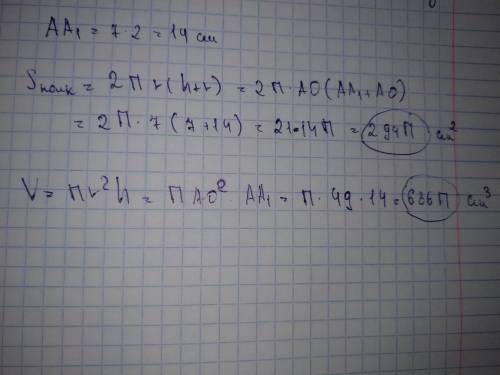 AA₁ = 7·2 = 14 см
Sполн = 2П r(h+r) = 2П·AO(AA₁+AO)
= 2П·7(7+14) = 21·14П = 294П см²
V = Пr²h = ПAO²·AA₁ = П·49·14 = 686П см³